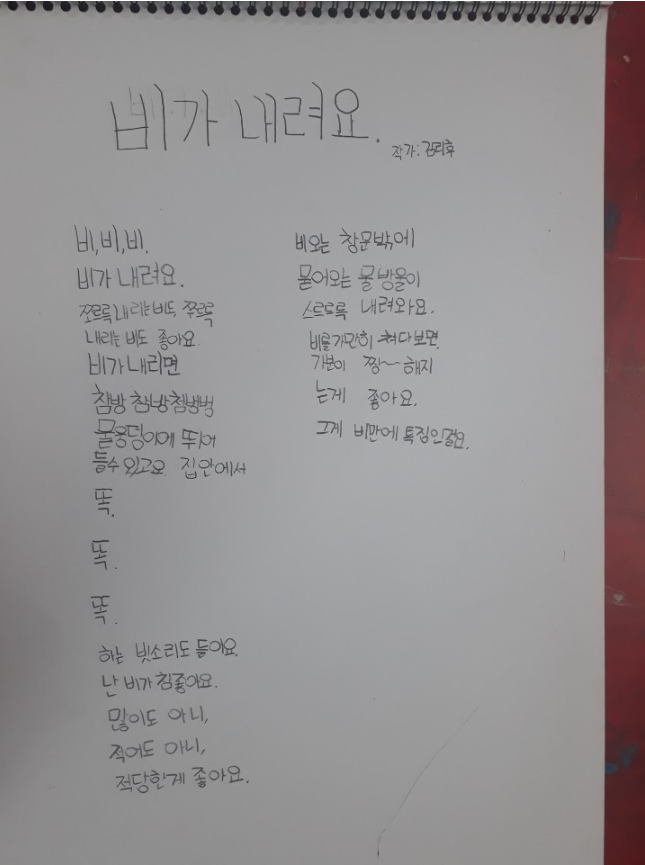 비가 내려요.
작가: 김리후
비,비,비.
비가 내려요.
쪼르륵 내리는비도 쭈르륵
내리는 비도 좋아요
비가 내리면
첨방 첨방 첨방첨벙
물웅덩이에 뛰어
들수 있고요 집안에서
똑.
똑.
똑.
하는 빗소리도 들어요.
난 비가 참좋아요.
많이도 아니,
적어도 아니,
적당한게 좋아요.
비오는 창문밖에
묻어오는 물방울이
스르르륵 내려와요.
비를가만히 쳐다보면
기분이 찡~해지
는게 좋아요.
그게 비만에 특징인걸요.